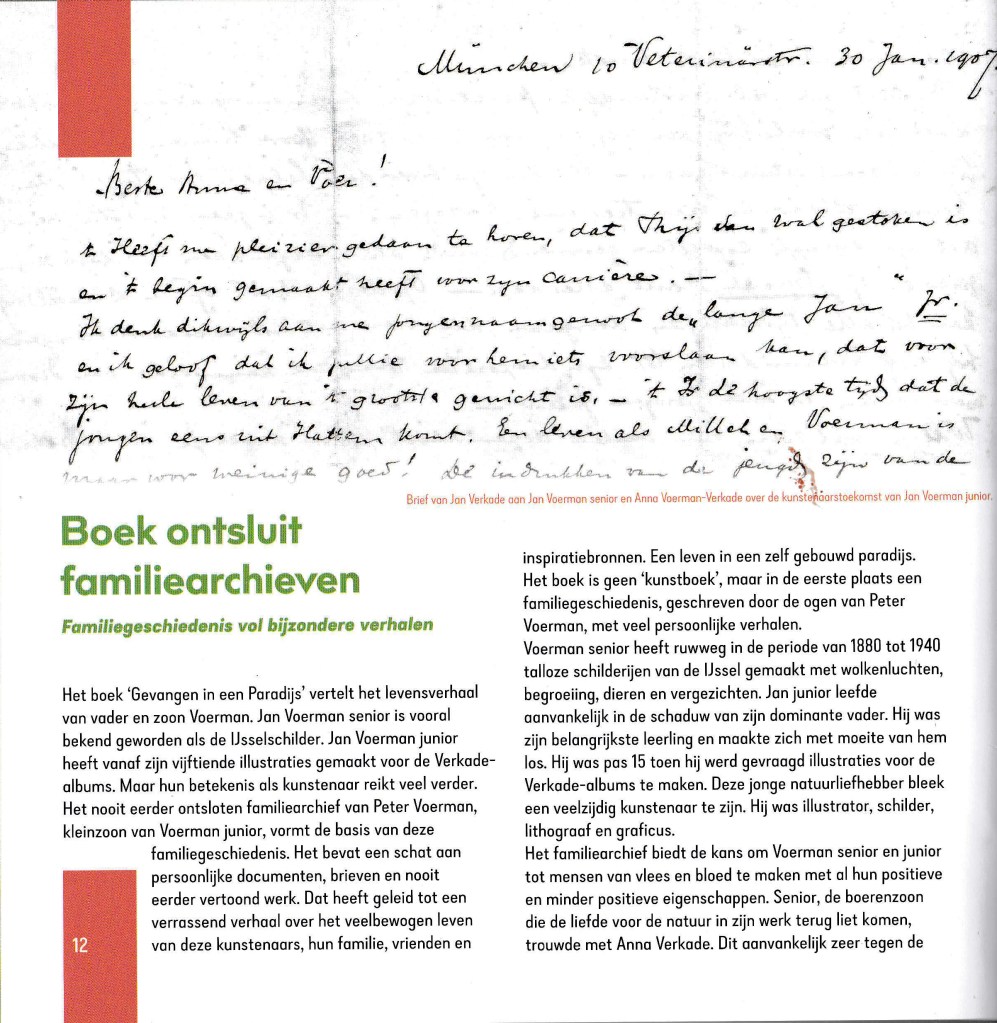 München 10 Veterinärstr. 30 Jan. 1907.
Beste Anna en Voer!
't Heeft me pleizier gedaan te horen, dat Thijs van wal gestoken is
en 't begin gemaakt heeft voor zijn carrière. —
Ik denk dikwijls aan me jongen naamgenoot de „lange Jan“ Jr.
en ik geloof dat ik jullie voor hem iets voorslaan kan, dat voor
zijn heele leven van 't grootste gewicht is. — 't Is de hoogste tijd dat de
jongen eens uit Hattem komt. Een leven als Millet en Voerman is
maar voor weinige goed! De indrukken van de jeugd zijn van de
Brief van Jan Verkade aan Jan Voerman senior en Anna Voerman-Verkade over de kunstenaarstoekomst van Jan Voerman junior.
Boek ontsluit
familiearchieven
Familiegeschiedenis vol bijzondere verhalen
Het boek ‘Gevangen in een Paradijs’ vertelt het levensverhaal
van vader en zoon Voerman. Jan Voerman senior is vooral
bekend geworden als de IJsselschilder. Jan Voerman junior
heeft vanaf zijn vijftiende illustraties gemaakt voor de Verkade-
albums. Maar hun betekenis als kunstenaar reikt veel verder.
Het nooit eerder ontsloten familiearchief van Peter Voerman,
kleinzoon van Voerman junior, vormt de basis van deze
familiegeschiedenis. Het bevat een schat aan
persoonlijke documenten, brieven en nooit
eerder vertoond werk. Dat heeft geleid tot een
verrassend verhaal over het veelbewogen leven
van deze kunstenaars, hun familie, vrienden en
12
inspiratiebronnen. Een leven in een zelf gebouwd paradijs.
Het boek is geen ‘kunstboek’, maar in de eerste plaats een
familiegeschiedenis, geschreven door de ogen van Peter
Voerman, met veel persoonlijke verhalen.
Voerman senior heeft ruwweg in de periode van 1880 tot 1940
talloze schilderijen van de IJssel gemaakt met wolkenluchten,
begroeiing, dieren en vergezichten. Jan junior leefde
aanvankelijk in de schaduw van zijn dominante vader. Hij was
zijn belangrijkste leerling en maakte zich met moeite van hem
los. Hij was pas 15 toen hij werd gevraagd illustraties voor de
Verkade-albums te maken. Deze jonge natuurliefhebber bleek
een veelzijdig kunstenaar te zijn. Hij was illustrator, schilder,
lithograaf en graficus.
Het familiearchief biedt de kans om Voerman senior en junior
tot mensen van vlees en bloed te maken met al hun positieve
en minder positieve eigenschappen. Senior, de boerenzoon
die de liefde voor de natuur in zijn werk terug liet komen,
trouwde met Anna Verkade. Dit aanvankelijk zeer tegen de